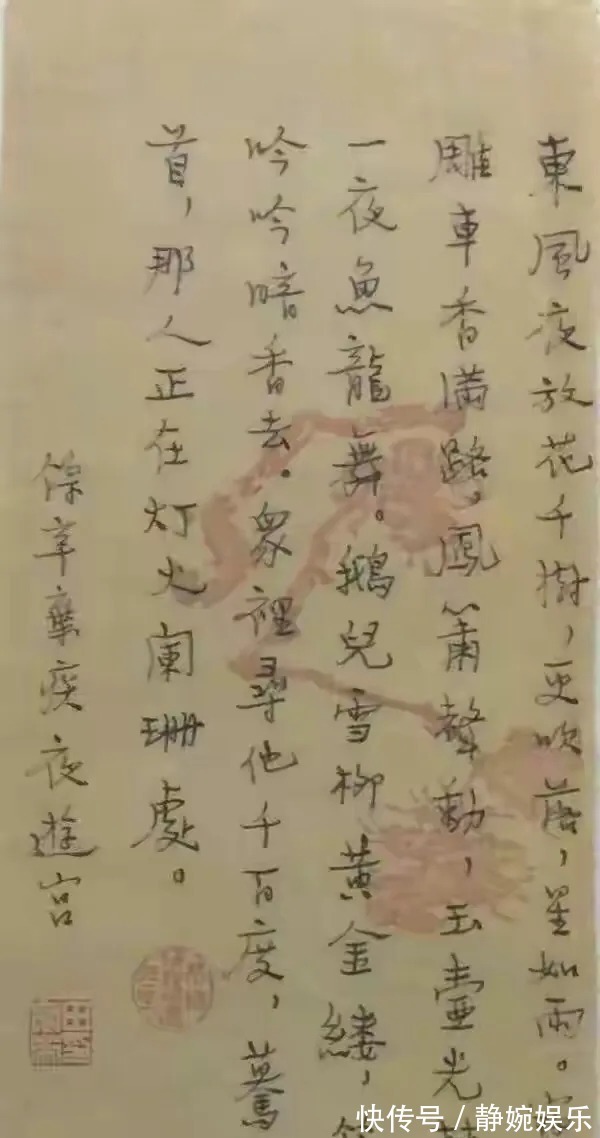 東風夜放花千樹，更吹落，星如雨。
雕車香滿路，鳳簫聲動，玉壷光
一夜魚龍舞。鵝兒雪柳黃金縷，
吟吟暗香去。衆裡尋他千百度，驀
首，那人正在灯火阑珊處。
辛棄疾夜遊宮
快传号 / 静婉娱乐